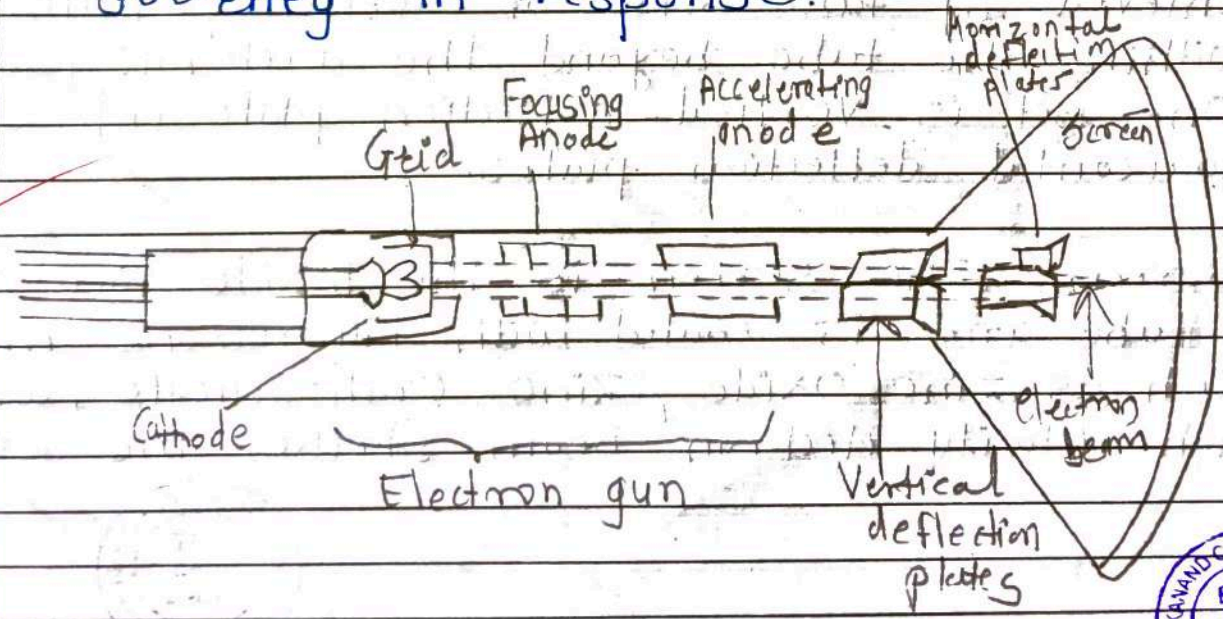 in response.
Horizontal
deflection
plates
Focusing
Anode
Accelerating
anode
Screen
Grid
Cathode
Electron gun
Vertical
deflection
plates
electron
beam